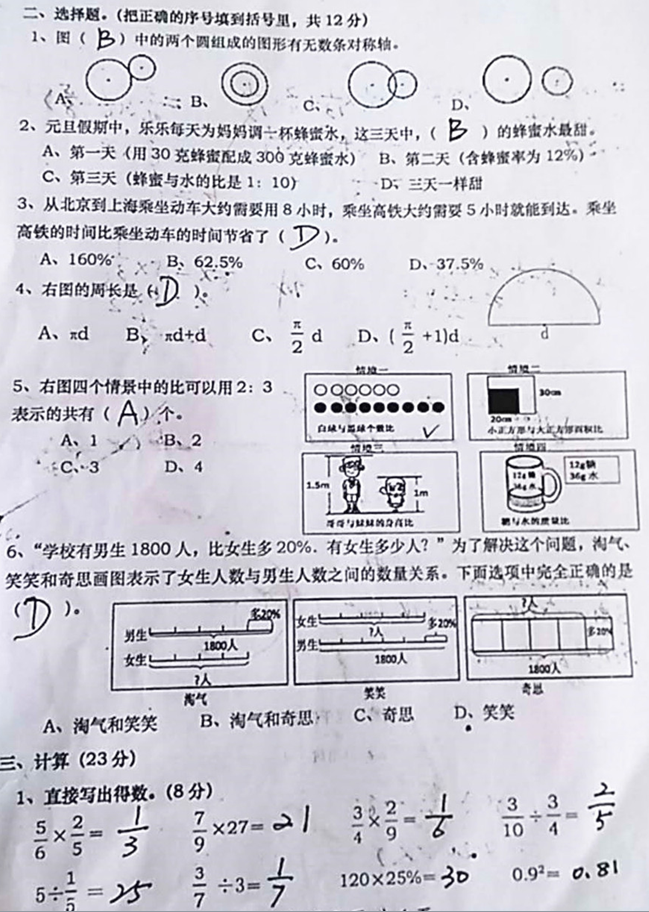 二、选择题。(把正确的序号填到括号里，共 12 分)
1、图 ( B ) 中的两个圆组成的图形有无数条对称轴。
A、 B、 C、 D、
2、元旦假期中，乐乐每天为妈妈调一杯蜂蜜水，这三天中，( B ) 的蜂蜜水最甜。
A、第一天 (用 30 克蜂蜜配成 300 克蜂蜜水) B、第二天 (含蜂蜜率为 12%)
C、第三天 (蜂蜜与水的比是 1：10) D、三天一样甜
3、从北京到上海乘坐动车大约需要用 8 小时，乘坐高铁大约需要 5 小时就能到达。乘坐
高铁的时间比乘坐动车的时间节省了 ( D )。
A、160% B、62.5% C、60% D、37.5%
4、右图的周长是 ( D )。
A、πd B、πd+d C、π/2 d D、(π/2 +1)d
d
5、右图四个情景中的比可以用 2：3
表示的共有 ( A ) 个。
A、1 B、2
C、3 D、4
情境一 情境二
30cm
20cm
白球与黑球个数比 小正方形与大正方形面积比
情境三 情境四
1.5m 1m
12g糖
36g水
12g糖
36g水
哥哥与妹妹的身高比 糖与水的质量比
6、“学校有男生 1800 人，比女生多 20%．有女生多少人？”为了解决这个问题，淘气、
笑笑和奇思画图表示了女生人数与男生人数之间的数量关系。下面选项中完全正确的是
( D )。
多20%
男生
1800人
女生
?人
淘气
女生
?人
多20%
男生
1800人
笑笑
?人
多20%
1800人
奇思
A、淘气和笑笑 B、淘气和奇思 C、奇思 D、笑笑
三、计算 (23 分)
1、直接写出得数。(8 分)
5/6 × 2/5 = 1/3 7/9 ×27= 21 3/4 × 2/9 = 1/6 3/10 ÷ 3/4 = 2/5
5÷ 1/5 = 25 3/7 ÷3= 1/7 120×25%= 30 0.9²= 0.81